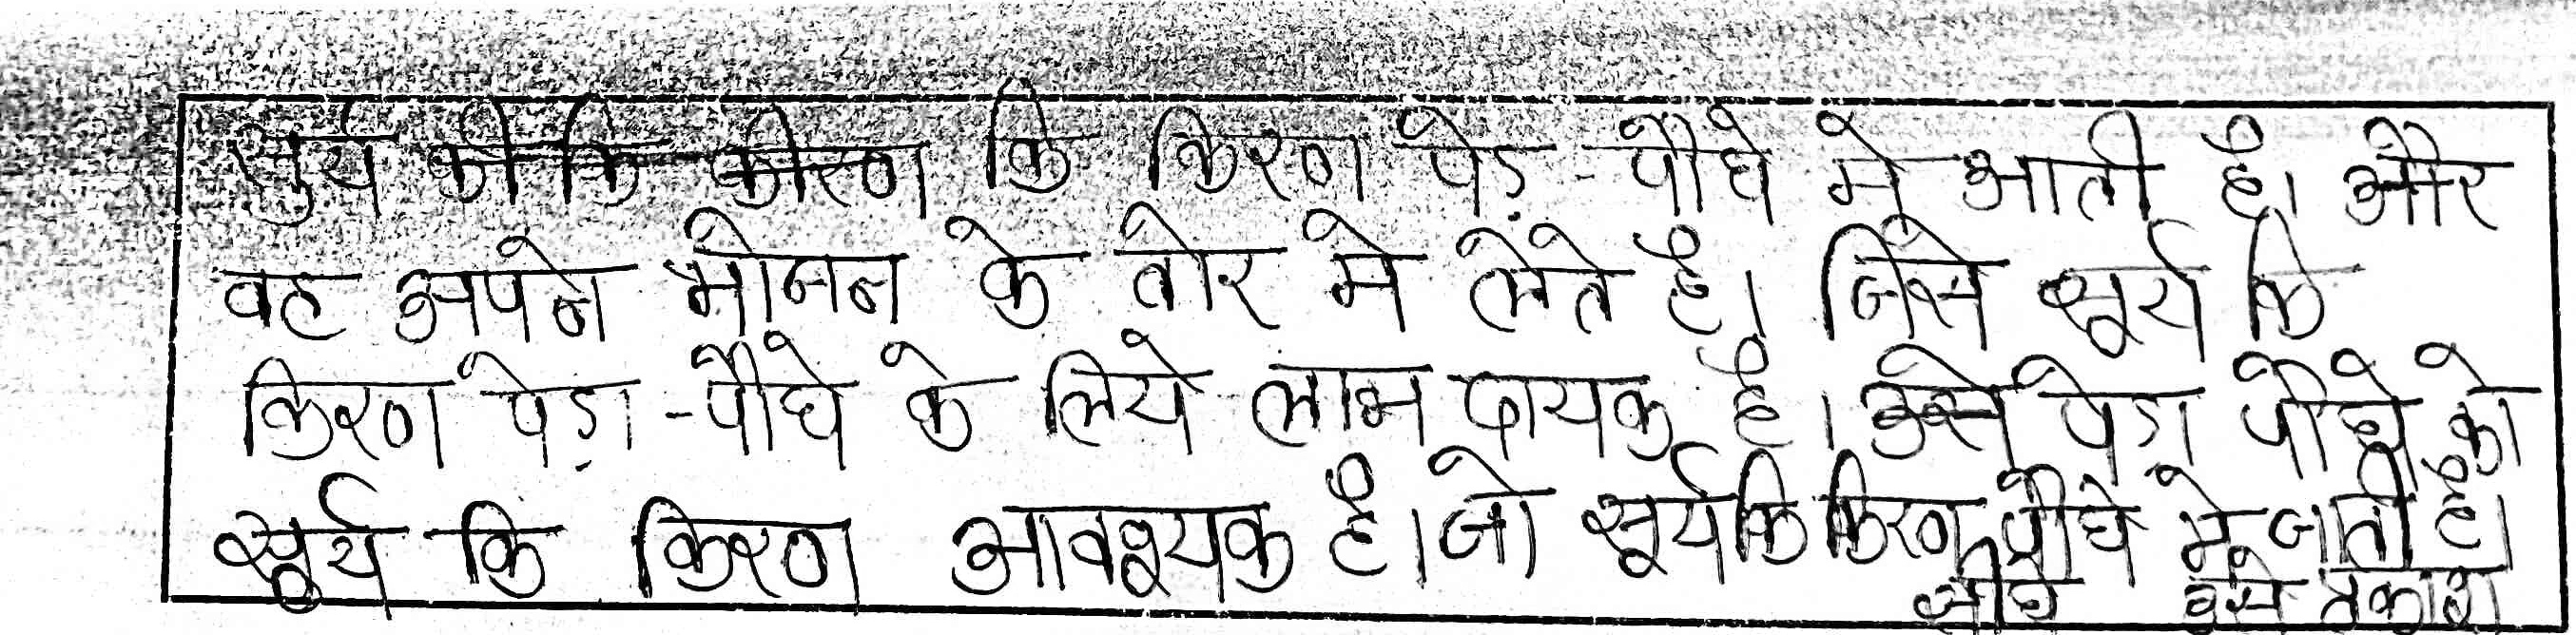 सुर्य की कि कीरण कि किरण पेड़ - पौधे मे आती है। और
वह अपने भोजन के तोर मे लेते है। जिसे सूर्य कि
किरण पेड़ा - पौधे के लिये लाभ दायक है। उसे पेड़ा पौधे को
सूर्य कि किरण आवश्यक है। जो सूर्य कि किरण पौधे मे जाती है।
सीधे उसे प्रकाश